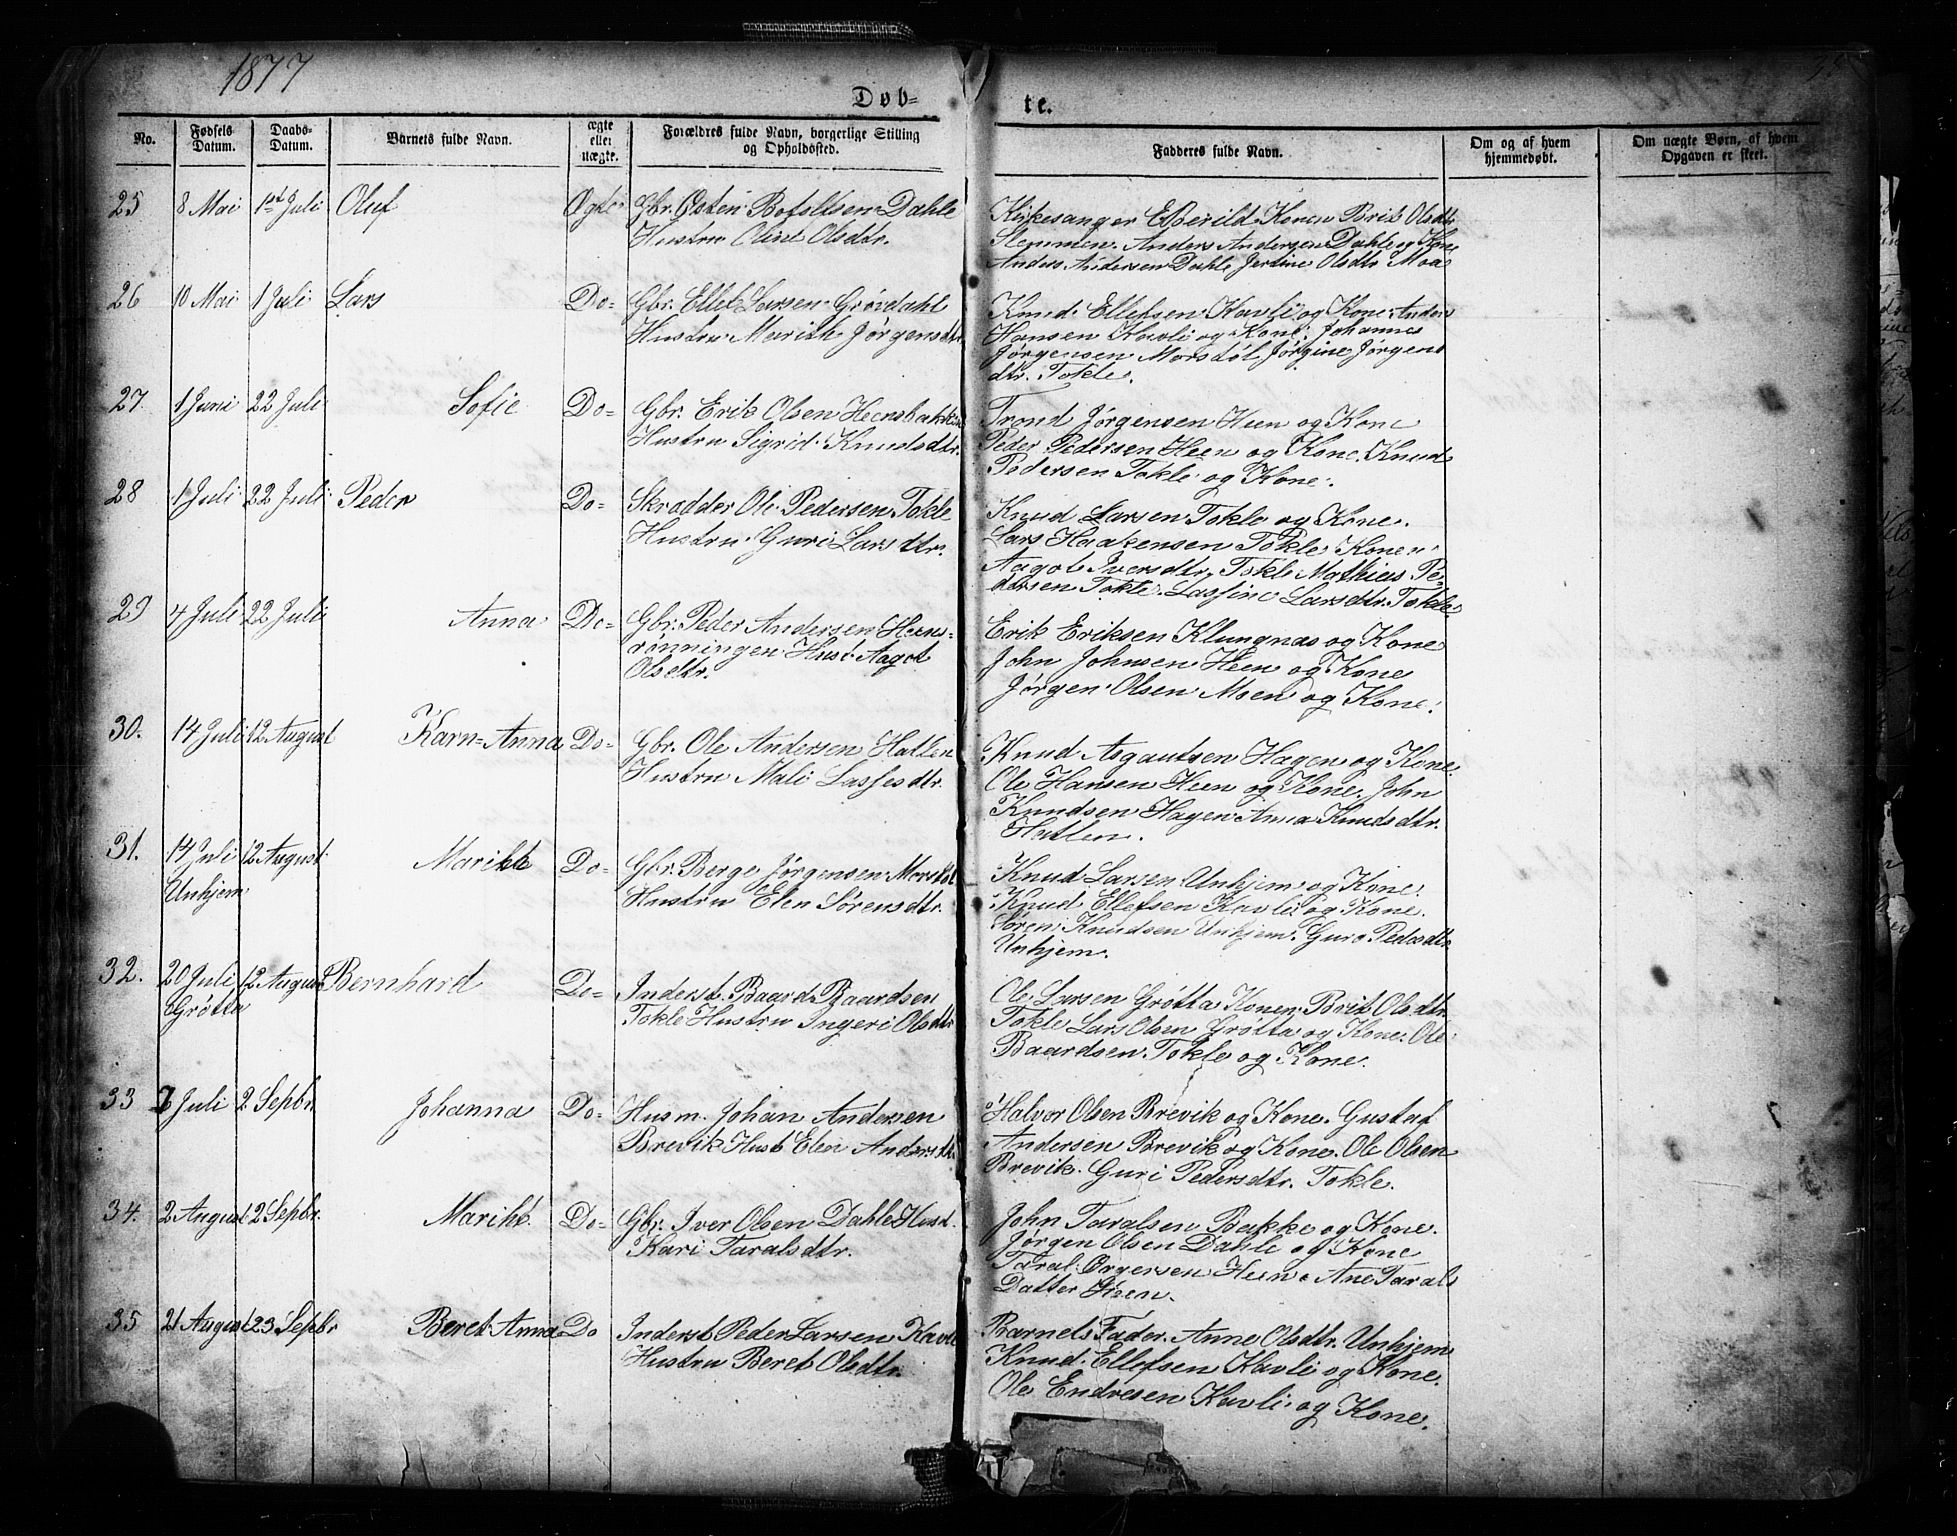 1877
Døb-
te.
No.
Fødsels
Datum.
Daabs-
Datum.
Barnets fulde Navn.
ægte
eller
uægte.
Forældres fulde Navn, borgerlige Stilling
og Opholdssted.
Fadderes fulde Navn.
Om og af hvem
hjemmedøbt.
Om uægte Børn, af hvem
Opgaven er skeet.
25 8 Mai 1st Juli Oluf Ægte Gbr. Østen Botolfsen Dahle
Hustru Oline Olsdtr.
Kirkesanger Konen Brit Olsdtr
Anders Andersen Dahle og Kone
Anders Andersen Dahle Olsdtr Moa
26 10 Mai 1 Juli Lars Do- Gbr. Ellef Larsen Grøvdahl
Hustru Marith Jørgensdtr.
Knud Ellefsen Kavli og Kone. Anders
Hansen Kavli og Kone. Johannes
Jørgensen Morstøl, Jørgine Jørgens
dtr. Tokle.
27. 1 Juni 22 Juli Sofie Do- Gbr. Erik Olsen Heensbakken
Hustru Sigrid Knudsdtr.
Trond Jørgensen Heen og Kone
Peder Pedersen Heen og Kone. Knud
Pedersen Tokle og Kone.
28 1 Juli 22 Juli Peder Do- Skrædder Ole Pedersen Tokle
Hustru Guri Larsdtr.
Knud Larsen Tokle og Kone.
Lars Haakensen Tokle. Konen
Aagot Iversdtr. Tokle Mathias Pe-
dersen Tokle. Lassine Larsdtr. Tokle
29 4 Juli 22 Juli Anna Do- Gbr. Peder Andersen Heens-
rønningen Hust. Aagot
Olsdtr.
Erik Eriksen Klungnæs og Kone
John Johnsen Heen og Kone
Jørgen Olsen Moen og Kone.
30. 14 Juli 12 August Karn-Anna Do- Gbr. Ole Andersen Hatlen
Hustru Mali Lassesdtr.
Knud Asgautsen Hagen og Kone.
Ole Hansen Heen og Kone. John
Knudsen Hagen Anna Knudsdtr.
Hatlen.
31. 14 Juli 12 August Marihe Do- Gbr. Berge Jørgensen Morstøl
Unhjem Hustru Elen Sørensdtr.
Knud Larsen Unhjem og Kone.
Knud Ellefsen Kavli og Kone.
Søren Knudsen Unhjem. Guro Pedersdtr.
Unhjem.
32. 20 Juli 12 August Bernhard Do- Inderst. Baard Baardsen
Grøtta Tokle Hustru Ingeri Olsdtr
Ole Larsen Grøtta Konen Brit Olsdtr.
Tokle Lars Olsen Grøtta og Kone. Ole
Baardsen Tokle og Kone.
33 7 Juli 2 Sepbr. Johanna Do- Husm. Johan Andersen
Brevik Hust Elen Andersdtr.
Halvor Olsen Brevik og Kone. Gustaf
Andersen Brevik og Kone. Ole Olsen
Brevik. Guri Pedersdtr. Tokle.
34. 2 August 2 Sepbr. Marihe Do- Gbr. Iver Olsen Dahle Hust.
Kari Taralsdtr.
John Taralsen Bakke og Kone.
Jørgen Olsen Dahle og Kone
Taral Ørgersen Heen. Ane Tarals
Datter Heen.
35 21 August 23 Sepbr Beret Anna Do Inderst Peder Larsen Kavli
Hustru Beret Olsdtr.
Barnets Fader. Anne Olsdtr. Unhjem
Knud Ellefsen Kavli og Kone.
Ole Endresen Kavli og Kone.